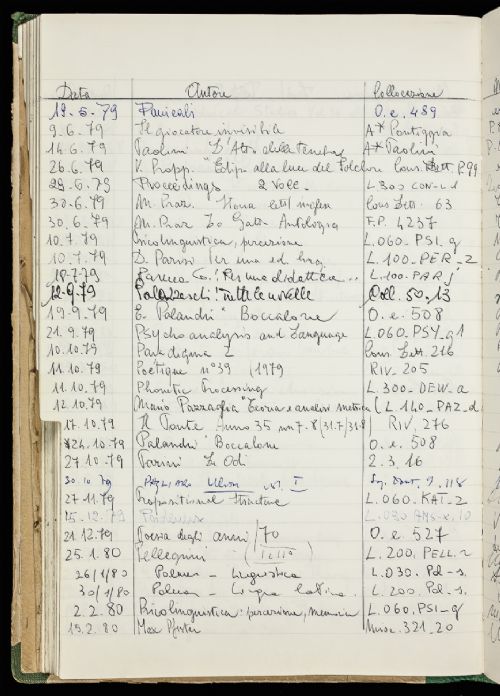 Data Autore Collocazione
19.5.79 O.e. 489
9.6.79 Il giocatore invisibile A* Pontiggia
14.6.79 Paolini L'Atto della A* Paolini
26.6.79 V. Propp. "Edipo alla luce del Folclore Cons. Lett. P. 99
28.6.79 Proceedings 2 voll. L 300 CON-
30.6.79 M. Praz. Storia lett/inglese Cons Lett. 63
30.6.79 M. Praz. La Antologia F.P. 4237
10.7.79 Psicolinguistica, percezione L.060.PSI.g
10.7.79 D. Parisi Per una ed. ling. L.100-PER-2
18.7.79 Co. "Per una didattica... L.100-PAR
12.9.79 Palazzeschi: Tutte le novelle Coll. 50.13
19.9.79 G. Palandri "Boccalone O.e. 508
21.9.79 Psychoanalysis and Language L.060.PSY.g1
10.10.79 Paradigma 2 Cons. Lett. 216
11.10.79 Poétique n° 39 (1979 RIV. 205
11.10.79 Phonetic Processing L.300-DEW.a
12.10.79 Mario Pazzaglia "Teoria e analisi metrica (L.140-PAZ.d
17.10.79 Il Ponte Anno 35 nn 7-8 (31.7/31.8) RIV. 276
24.10.79 Palandri "Boccalone O.e. 508
27.10.79 Parini Le Odi 2.3.16
30.10.79 Ulisse vol. I 9.118
27.11.79 Propositional Structure L.060.KAT-2
15.12.79
21.12.79 Poesia degli anni /70 O.e. 527
25.1.80 Pellegrini L.200.PELL.
26/1/80 Palmer - Linguistica L.030.Pal-s.
30/1/80 Palmer - Lingua latina. L.200.Pal-s.
2.2.80 Psicolinguistica: percezione, memoria L.060.PSI-g
19.2.80 Max Pfister Misc. 321.20